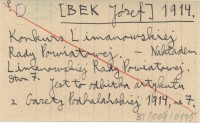 [BEK Józef] 1914.
Konkurs Limanowskiej
Rady Powiatowej. – Nakładem
Limanowskiej Rady Powiatowej.
Stron 7.
Jest to odbitka artykułu
z Gazety Podhalańskiej 1914, nr 7.